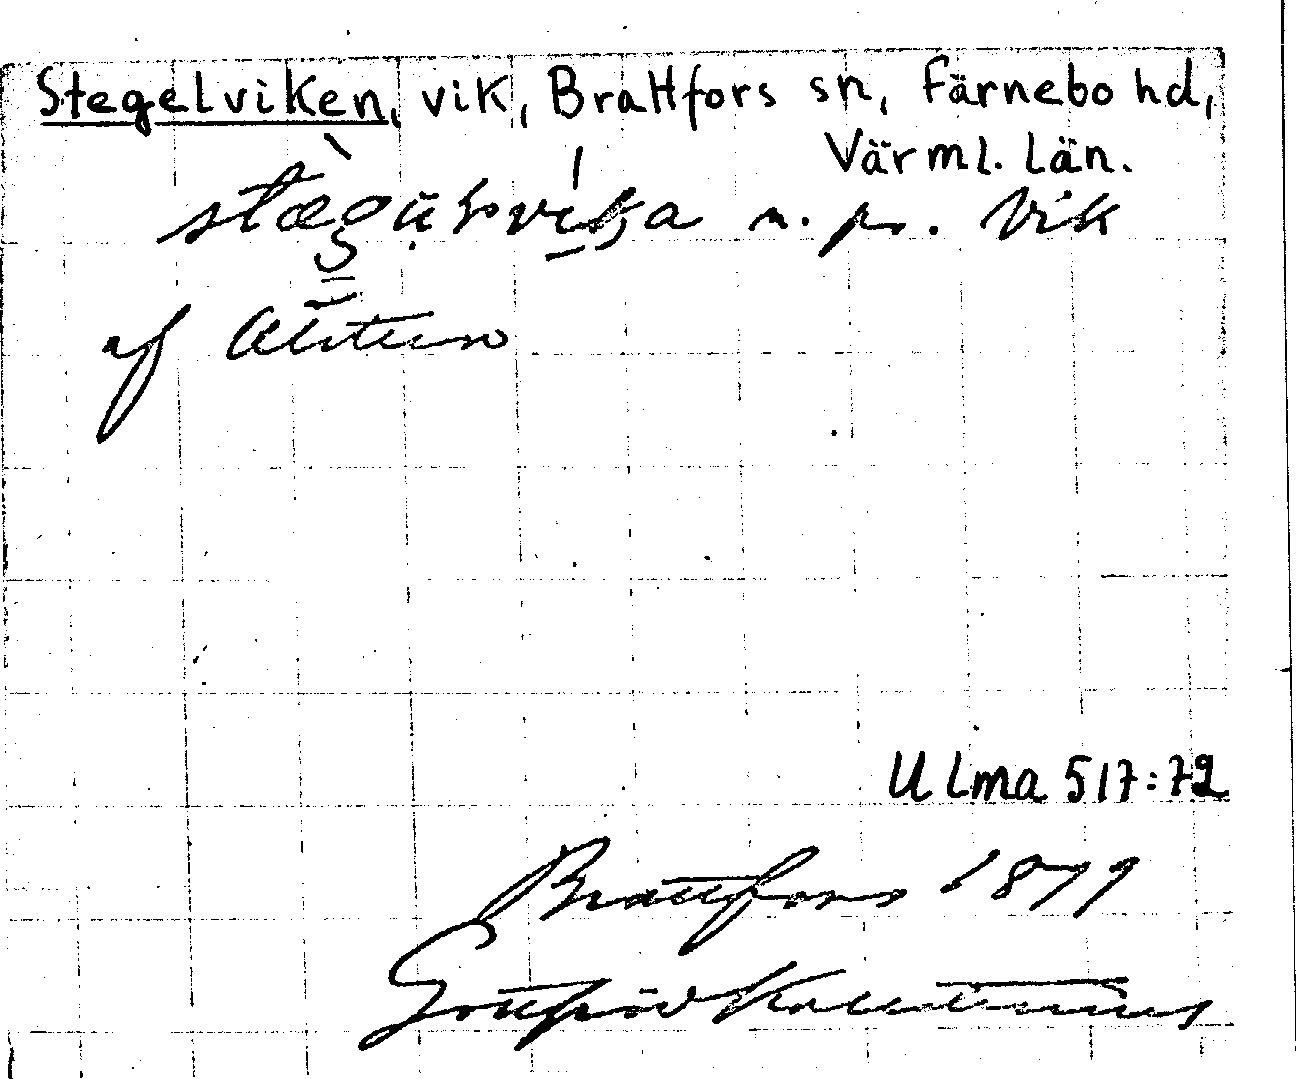 Stegelviken, vik, Brattfors sn, Färnebo hd,
Värml. län.
n. pr. Vik
af Alstern
Ulma 517:72
Brattfors 1879
Gottfrid Kallstenius